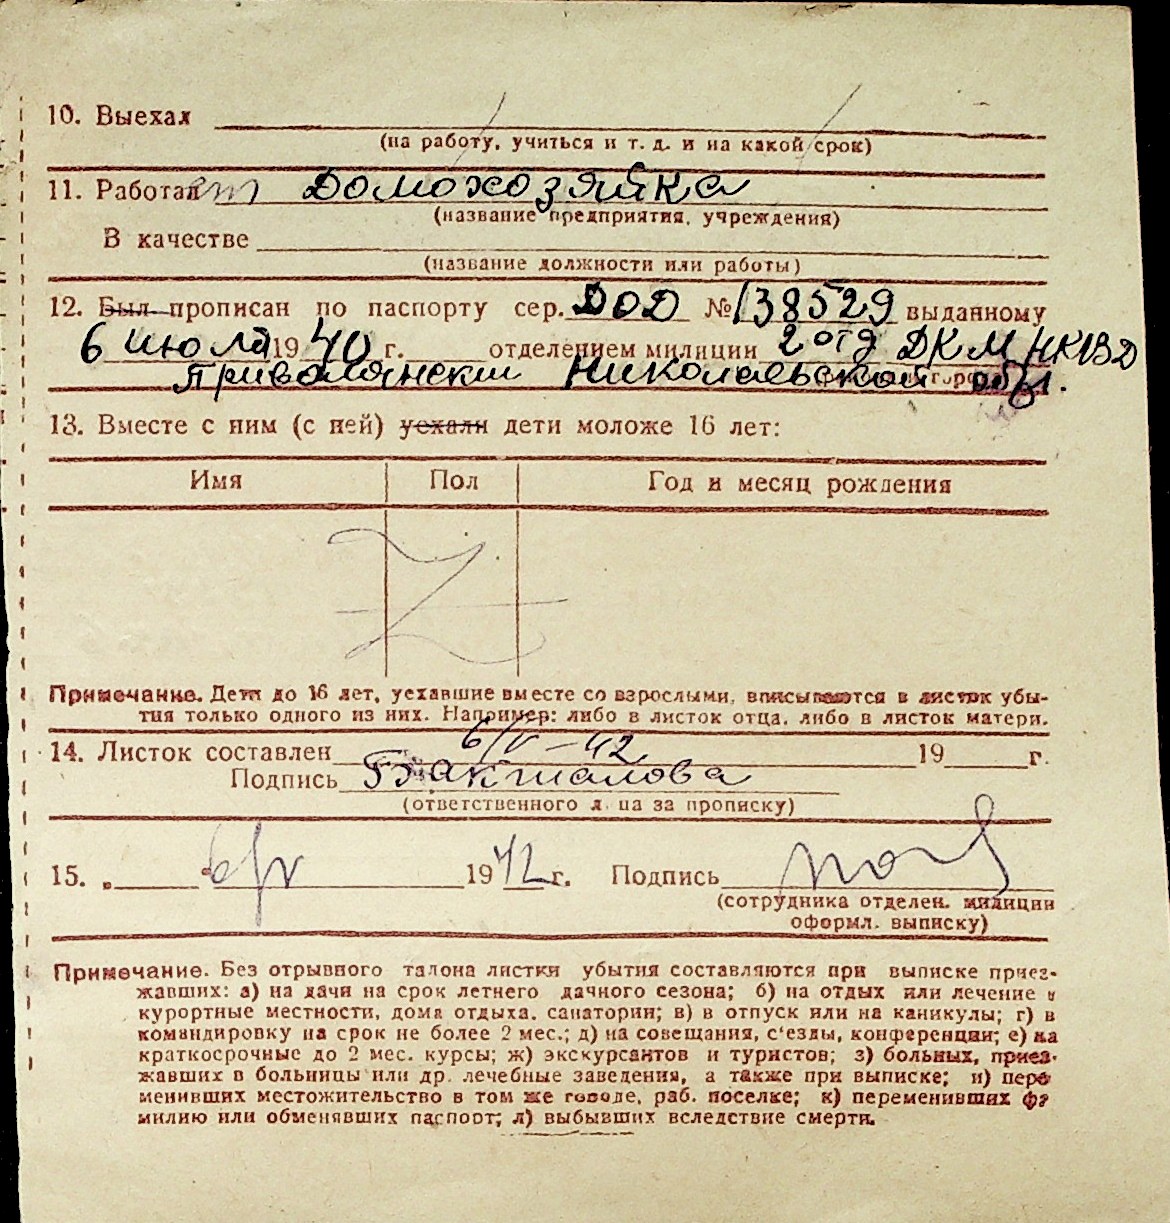 10. Выехал
(на работу, учиться и т. д. и на какой срок)
11. Работает Домохозяйка
(название предприятия, учреждения)
В качестве
(название должности или работы)
12. Был прописан по паспорту сер. ДОД № 138529 выданному
6 июля 1940 г. отделением милиции 2 отд ДКМ НКВД
Николаевской обл.
13. Вместе с ним (с ней) уехали дети моложе 16 лет:
Имя Пол Год и месяц рождения
Примечание. Дети до 16 лет, уехавшие вместе со взрослыми, вписываются в листок убы-
тия только одного из них. Например: либо в листок отца, либо в листок матери.
14. Листок составлен 6/V – 42 19 г.
Подпись Бакшалова
(ответственного лица за прописку)
15. „ 6/V 1942 г. Подпись
(сотрудника отделен. милиции
оформл. выписку)
Примечание. Без отрывного талона листки убытия составляются при выписке приез-
жавших: а) на дачи на срок летнего дачного сезона; б) на отдых или лечение в
курортные местности, дома отдыха, санатории; в) в отпуск или на каникулы; г) в
командировку на срок не более 2 мес.; д) на совещания, с'езды, конференции; е) на
краткосрочные до 2 мес. курсы; ж) экскурсантов и туристов; з) больных, приез-
жавших в больницы или др. лечебные заведения, а также при выписке; и) пере
менивших местожительство в том же городе, раб. поселке; к) переменивших фа
милию или обменявших паспорт; л) выбывших вследствие смерти.